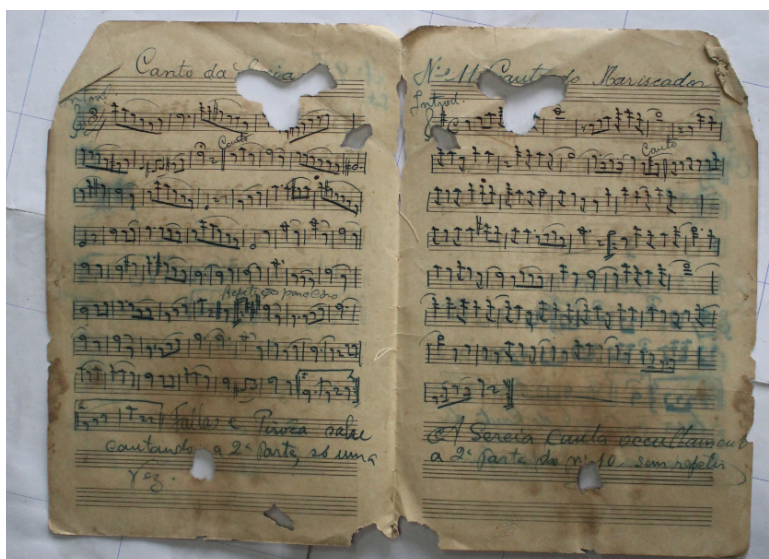 Canto da
Introd.
Canto
Repetição para Côro
Fallas e Piroca sahe
cantando a 2ª parte, só uma
vez.
Nº 11 Canto do Mariscador
Introd.
Canto
A Sereia canta occultamente
a 2ª parte do nº 10 sem repetir